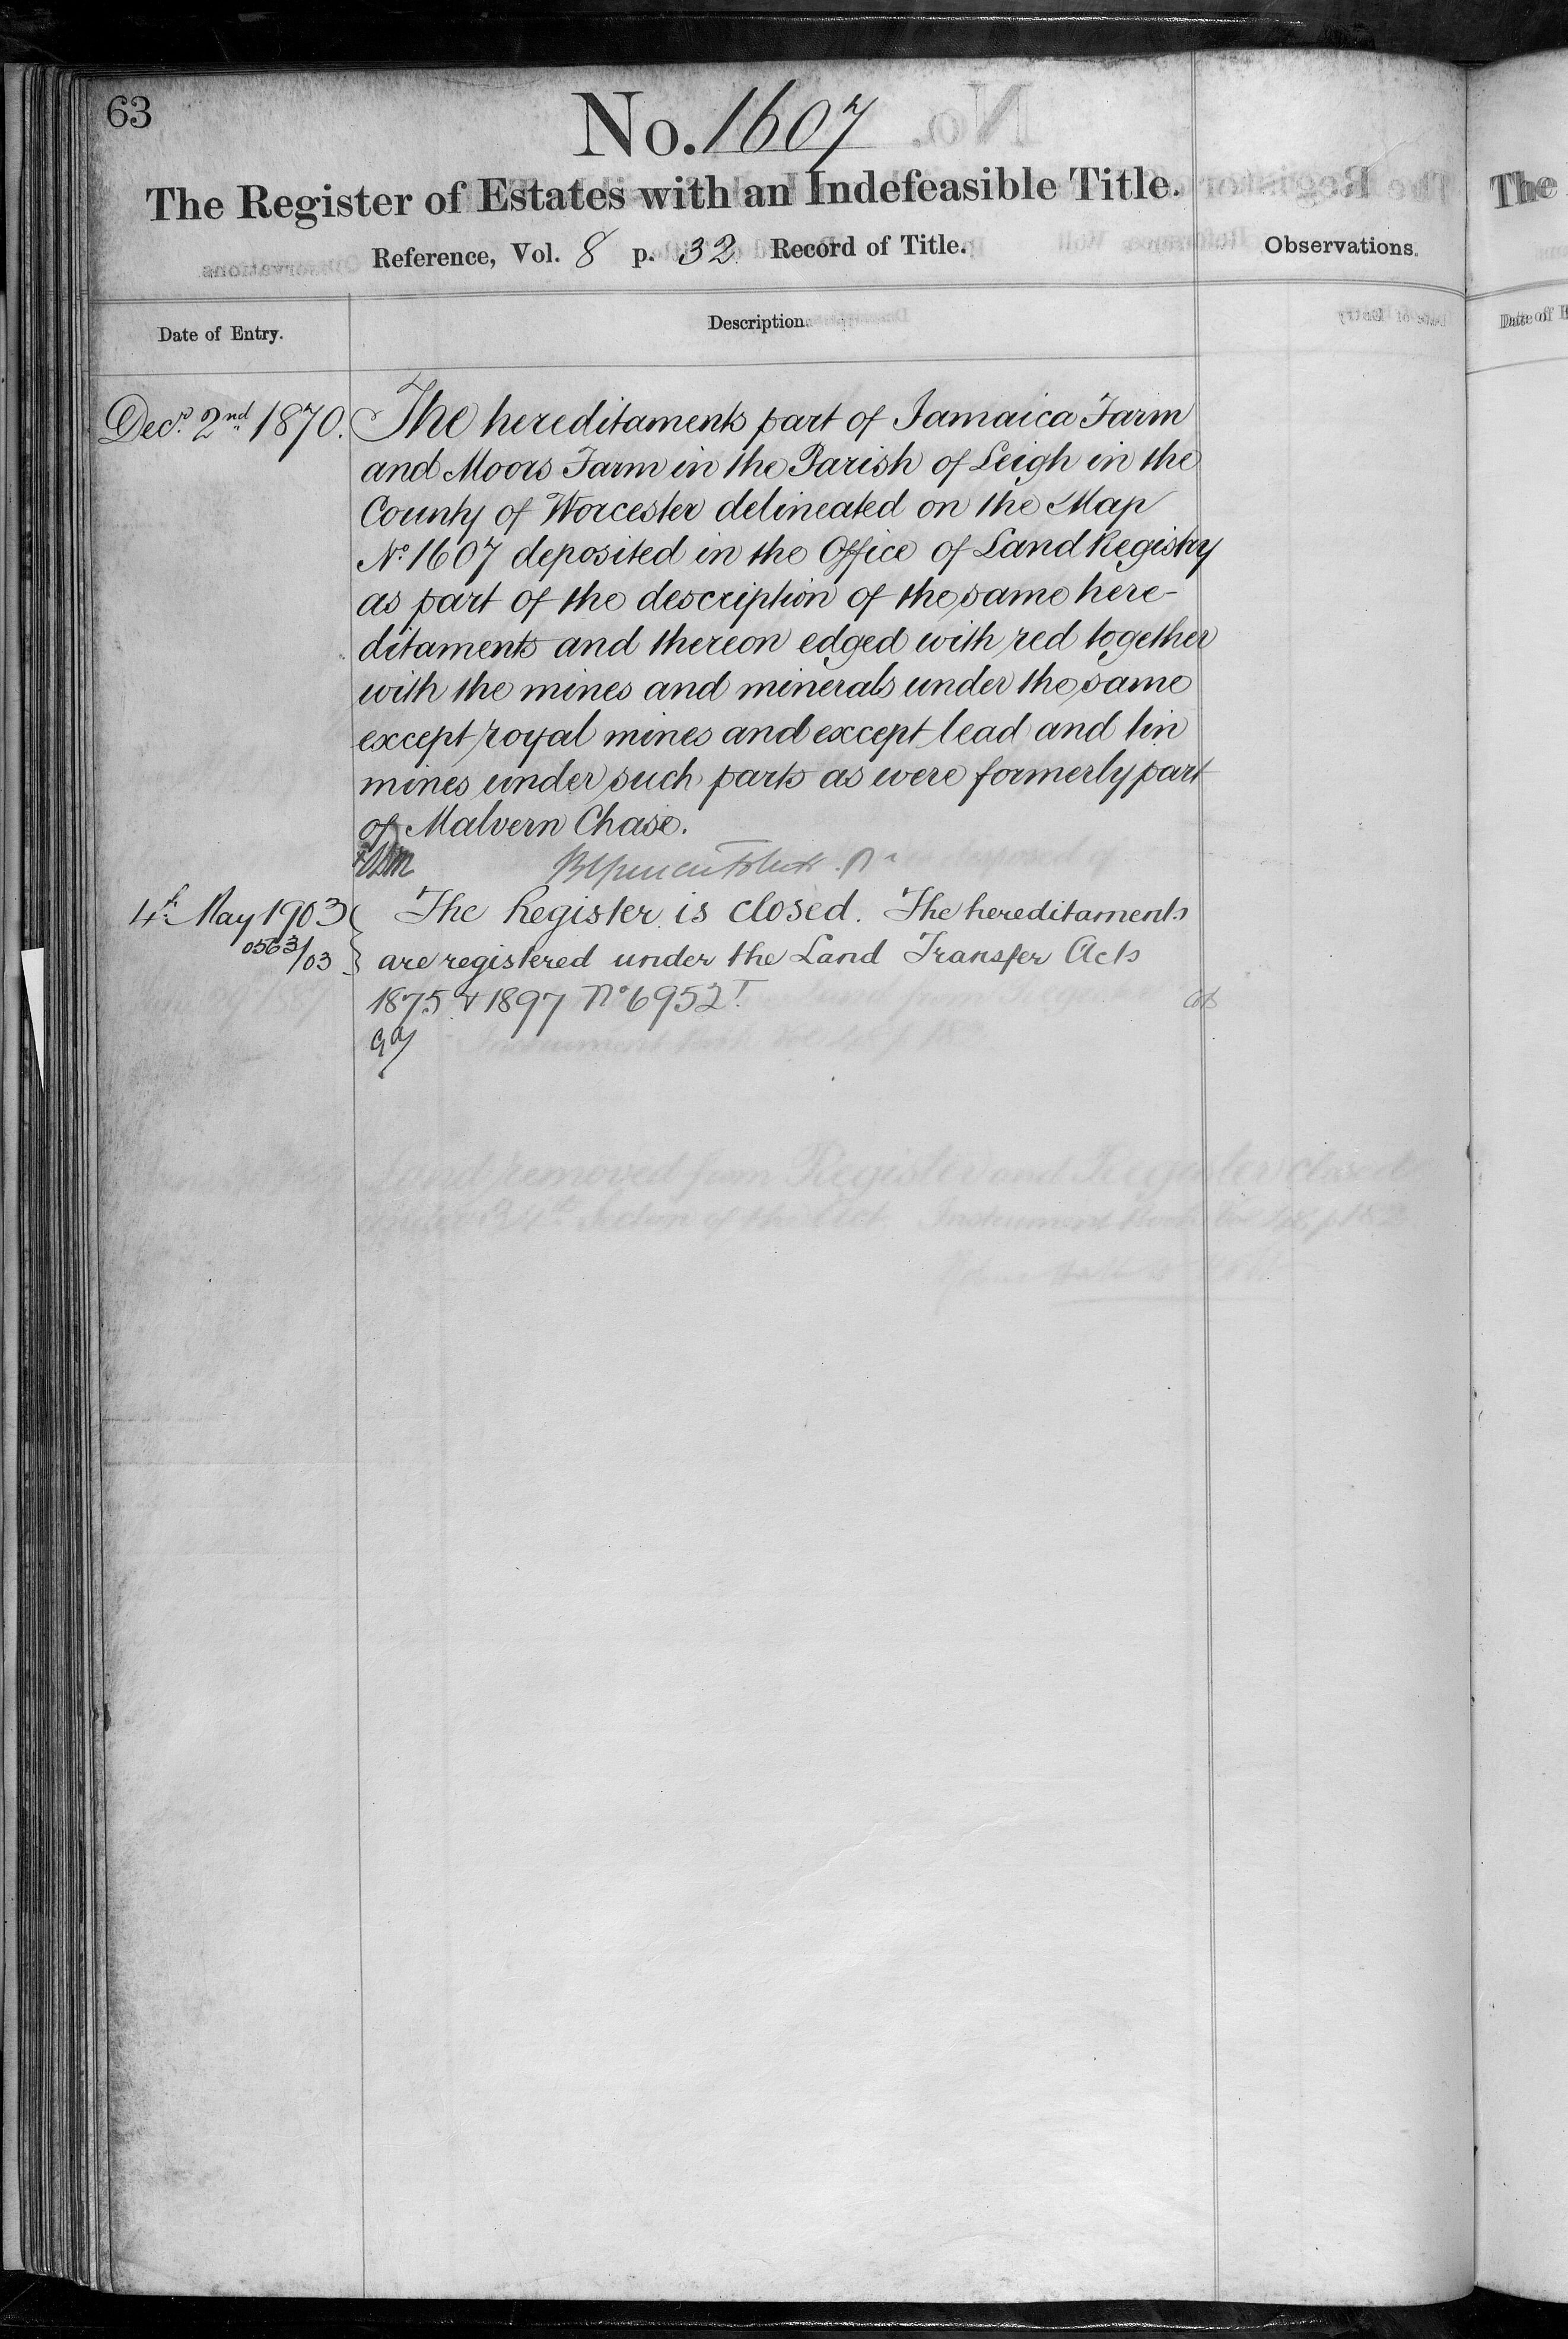 63
No. 1607
The Register of Estates with an Indefeasible Title.
Reference, Vol. 8 p. 32 Record of Title.
Observations.
Date of Entry.
Description.
Decr. 2nd 1870.
The hereditaments part of Jamaica Farm
and Moors Farm in the Parish of Leigh in the
County of Worcester delineated on the Map
No 1607 deposited in the Office of Land Registry
as part of the description of the same here-
ditaments and thereon edged with red together
with the mines and minerals under the same
except royal mines and except lead and tin
mines under such parts as were formerly part
of Malvern Chase.
4th May 1903
0563/03
The Register is closed. The hereditaments
are registered under the Land Transfer Acts
1875 & 1897 No 6952T.
The
Date of E